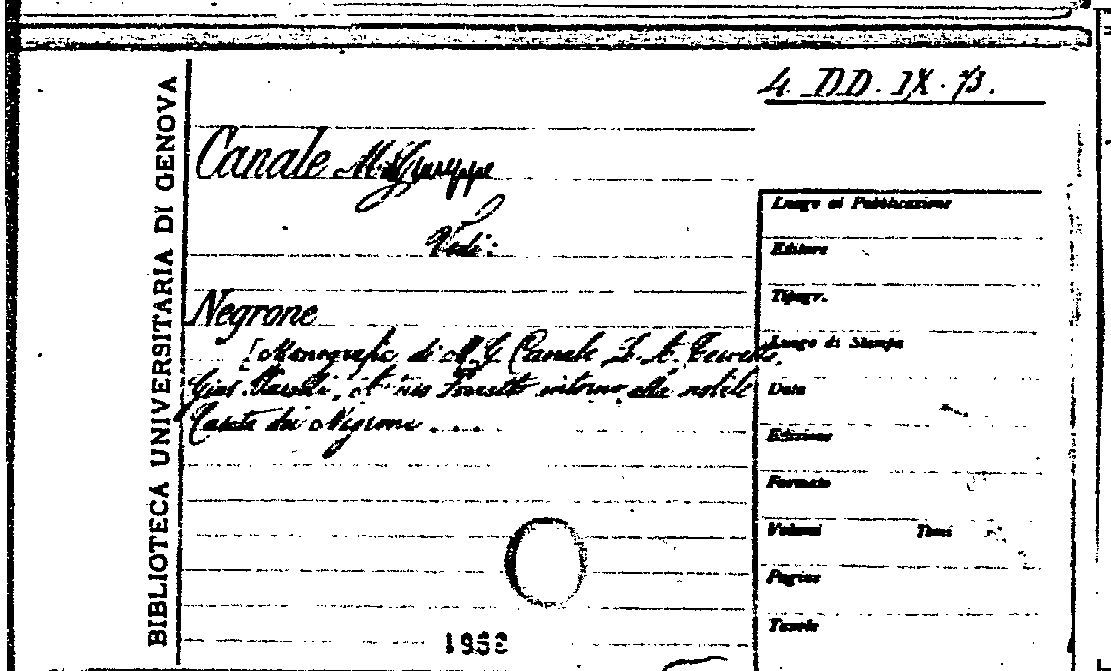 BIBLIOTECA UNIVERSITARIA DI GENOVA
4. DD. IX. 73.
Canale M. Giuseppe
Vedi:
Negrone
[Monografie di M. G. Canale, L. A.
intorno alla nobile
Casata dei Negrone ....
1952
Luogo di Pubblicazione
Editore
Tipogr.
Luogo di Stampa
Data
Edizione
Formato
Volumi Tomi
Pagine
Tavole